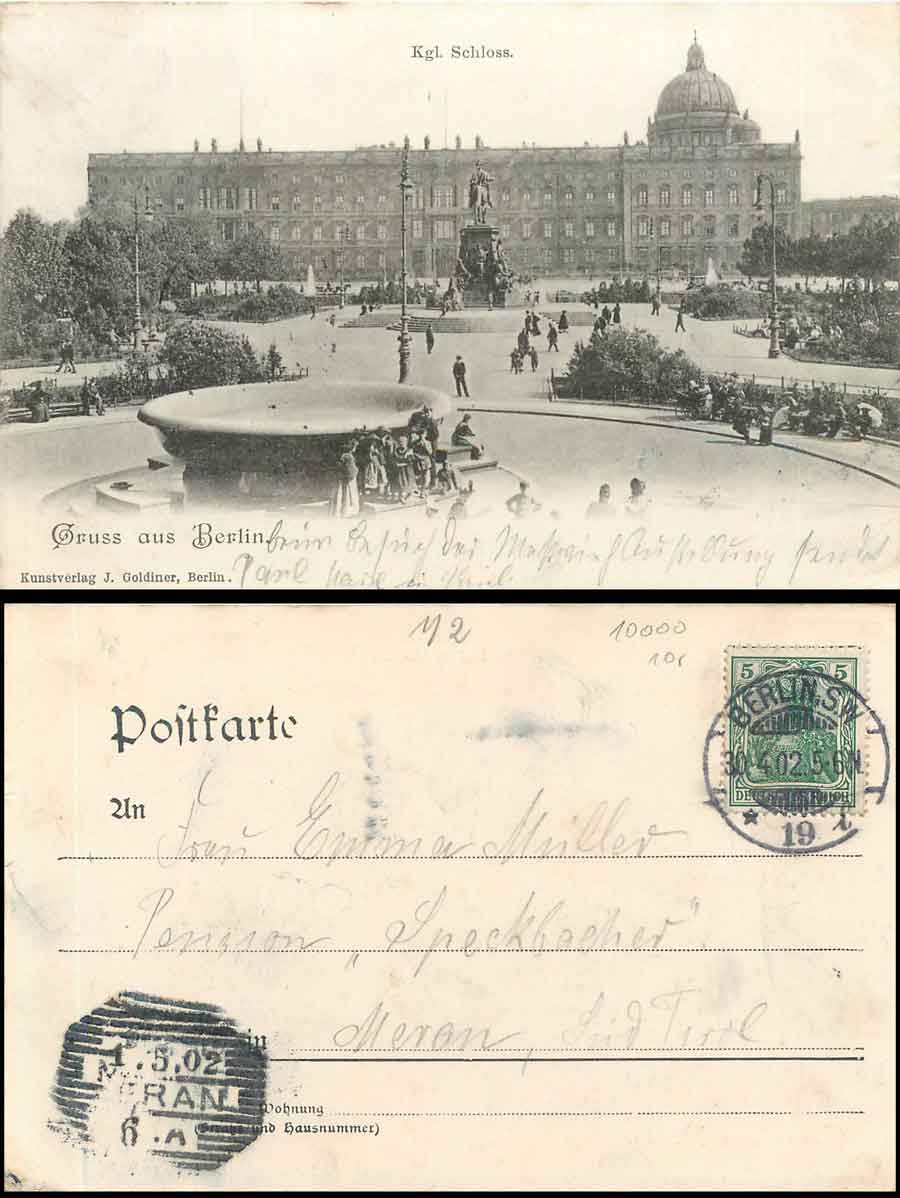 Kgl. Schloss.
Gruss aus Berlin. beim Besuch der Ausstellung sendet
Kunstverlag J. Goldiner, Berlin.
1/2
10000
Postkarte
5 5
BERLIN.S.W.
30.4.02.5-6N
DEUTSCHES REICH
19
An
Frau Emma Müller
Pension „Speckbacher".
in Meran, Süd Tirol
1.5.02
MERAN
6.A
Wohnung
(Straße und Hausnummer)